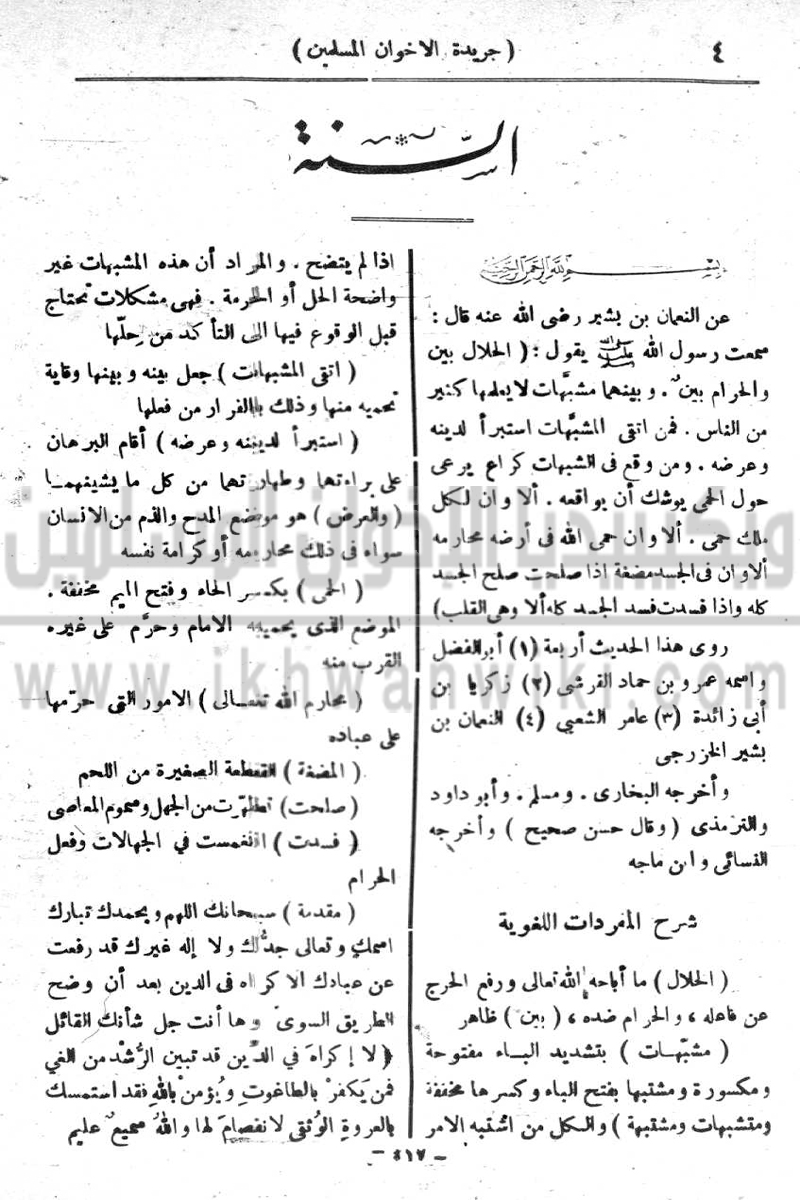 ٤
( جريدة الاخوان المسلمين )
السنة
بسم الله الرحمن الرحيم
عن النعمان بن بشير رضى الله عنه قال :
سمعت رسول الله ﷺ يقول : ( الحلال بين
والحرام بينٌ . وبينهما مشبَّهات لا يعلمها كثير
من الناس . فمن اتقى المشبَّهات استبرأ لدينه
وعرضه . ومن وقع فى الشبهات كراع يرعى
حول الحمى يوشك أن يواقعه . ألا وان لكل
ملك حمى . ألا وان حمى الله فى أرضه محارمه
ألا وان فى الجسد مضغة اذا صلحت صلح الجسد
كله واذا فسدت فسد الجسد كله ألا وهى القلب )
روى هذا الحديث أربعة (١) أبو الفضل
واسمه عمرو بن حماد القرشى (٢) زكريا بن
أبى زائدة (٣) عامر الشعبي (٤) النعمان بن
بشير الخزرجى
وأخرجه البخارى . ومسلم . وأبو داود
والترمذى ( وقال حسن صحيح ) وأخرجه
النسائى وابن ماجه
شرح المفردات اللغوية
( الحلال ) ما أباحه الله تعالى ورفع الحرج
عن فاعله ، والحرام ضده ، ( بين ) ظاهر
( مشبّهات ) بتشديد الباء مفتوحة
ومكسورة ومشتبها بفتح الباء وكسرها مخففة
ومتشبهات ومشتبهة ) والكل من اشتبه الامر
اذا لم يتضح . والمراد أن هذه المشبهات غير
واضحة الحل أو الحرمة . فهى مشكلات تحتاج
قبل الوقوع فيها الى التأكد من حِلّها
( اتقى المشبهات ) جعل بينه وبينها وقاية
تحميه منها وذلك بالفرار من فعلها
( استبرأ لدينه وعرضه ) أقام البرهان
على براءتها وطهارتهما من كل ما يشينهما
( والعرض ) هو موضع المدح والذم من الانسان
سواء فى ذلك محارمه أو كرامة نفسه
( الحمى ) بكسر الحاء وفتح الميم مخففة .
الموضع الذى يحميه الامام وحرّم على غيره
القرب منه
( محارم الله تعـالى ) الامور التى حرّمها
على عباده
( المضغة ) القطعة الصغيرة من اللحم
( صلحت ) تطهّرت من الجهل وسموم المعاصى
( فسدت ) انغمست في الجهالات وفعل
الحرام
( مقدمة ) سبحانك اللهم وبحمدك تبارك
اسمك وتعالى جدُّك ولا إله غيرك قد رفعت
عن عبادك الاكراه فى الدين بعد أن وضح
الطريق السوى وها أنت جل شأنك القائل
﴿ لا إكراهَ في الدِّين قد تبين الرُّشد من الغي
فمن يَكفرْ بالطاغوتِ ويُؤمنْ باللهِ فقد استمسك
بالعروةِ الوُثقى لا نفصامَ لها واللهُ سميعٌ عليم
- ٤١٧ -
ويكيبيديا الإخوان المسلمين
www.ikhwanwiki.com